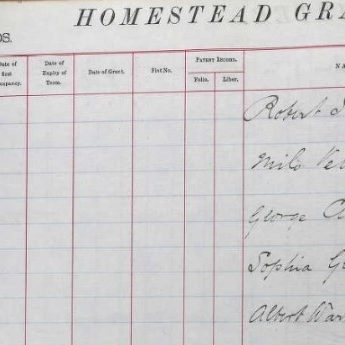 HOMESTEAD GRA
DS.
Date of first cupancy.
Date of Expiry of Term.
Date of Grant.
Fiat No.
PATENT RECORD.
Folio.
Liber.
NA
Robert
Milo
George
Sophia
Albert War